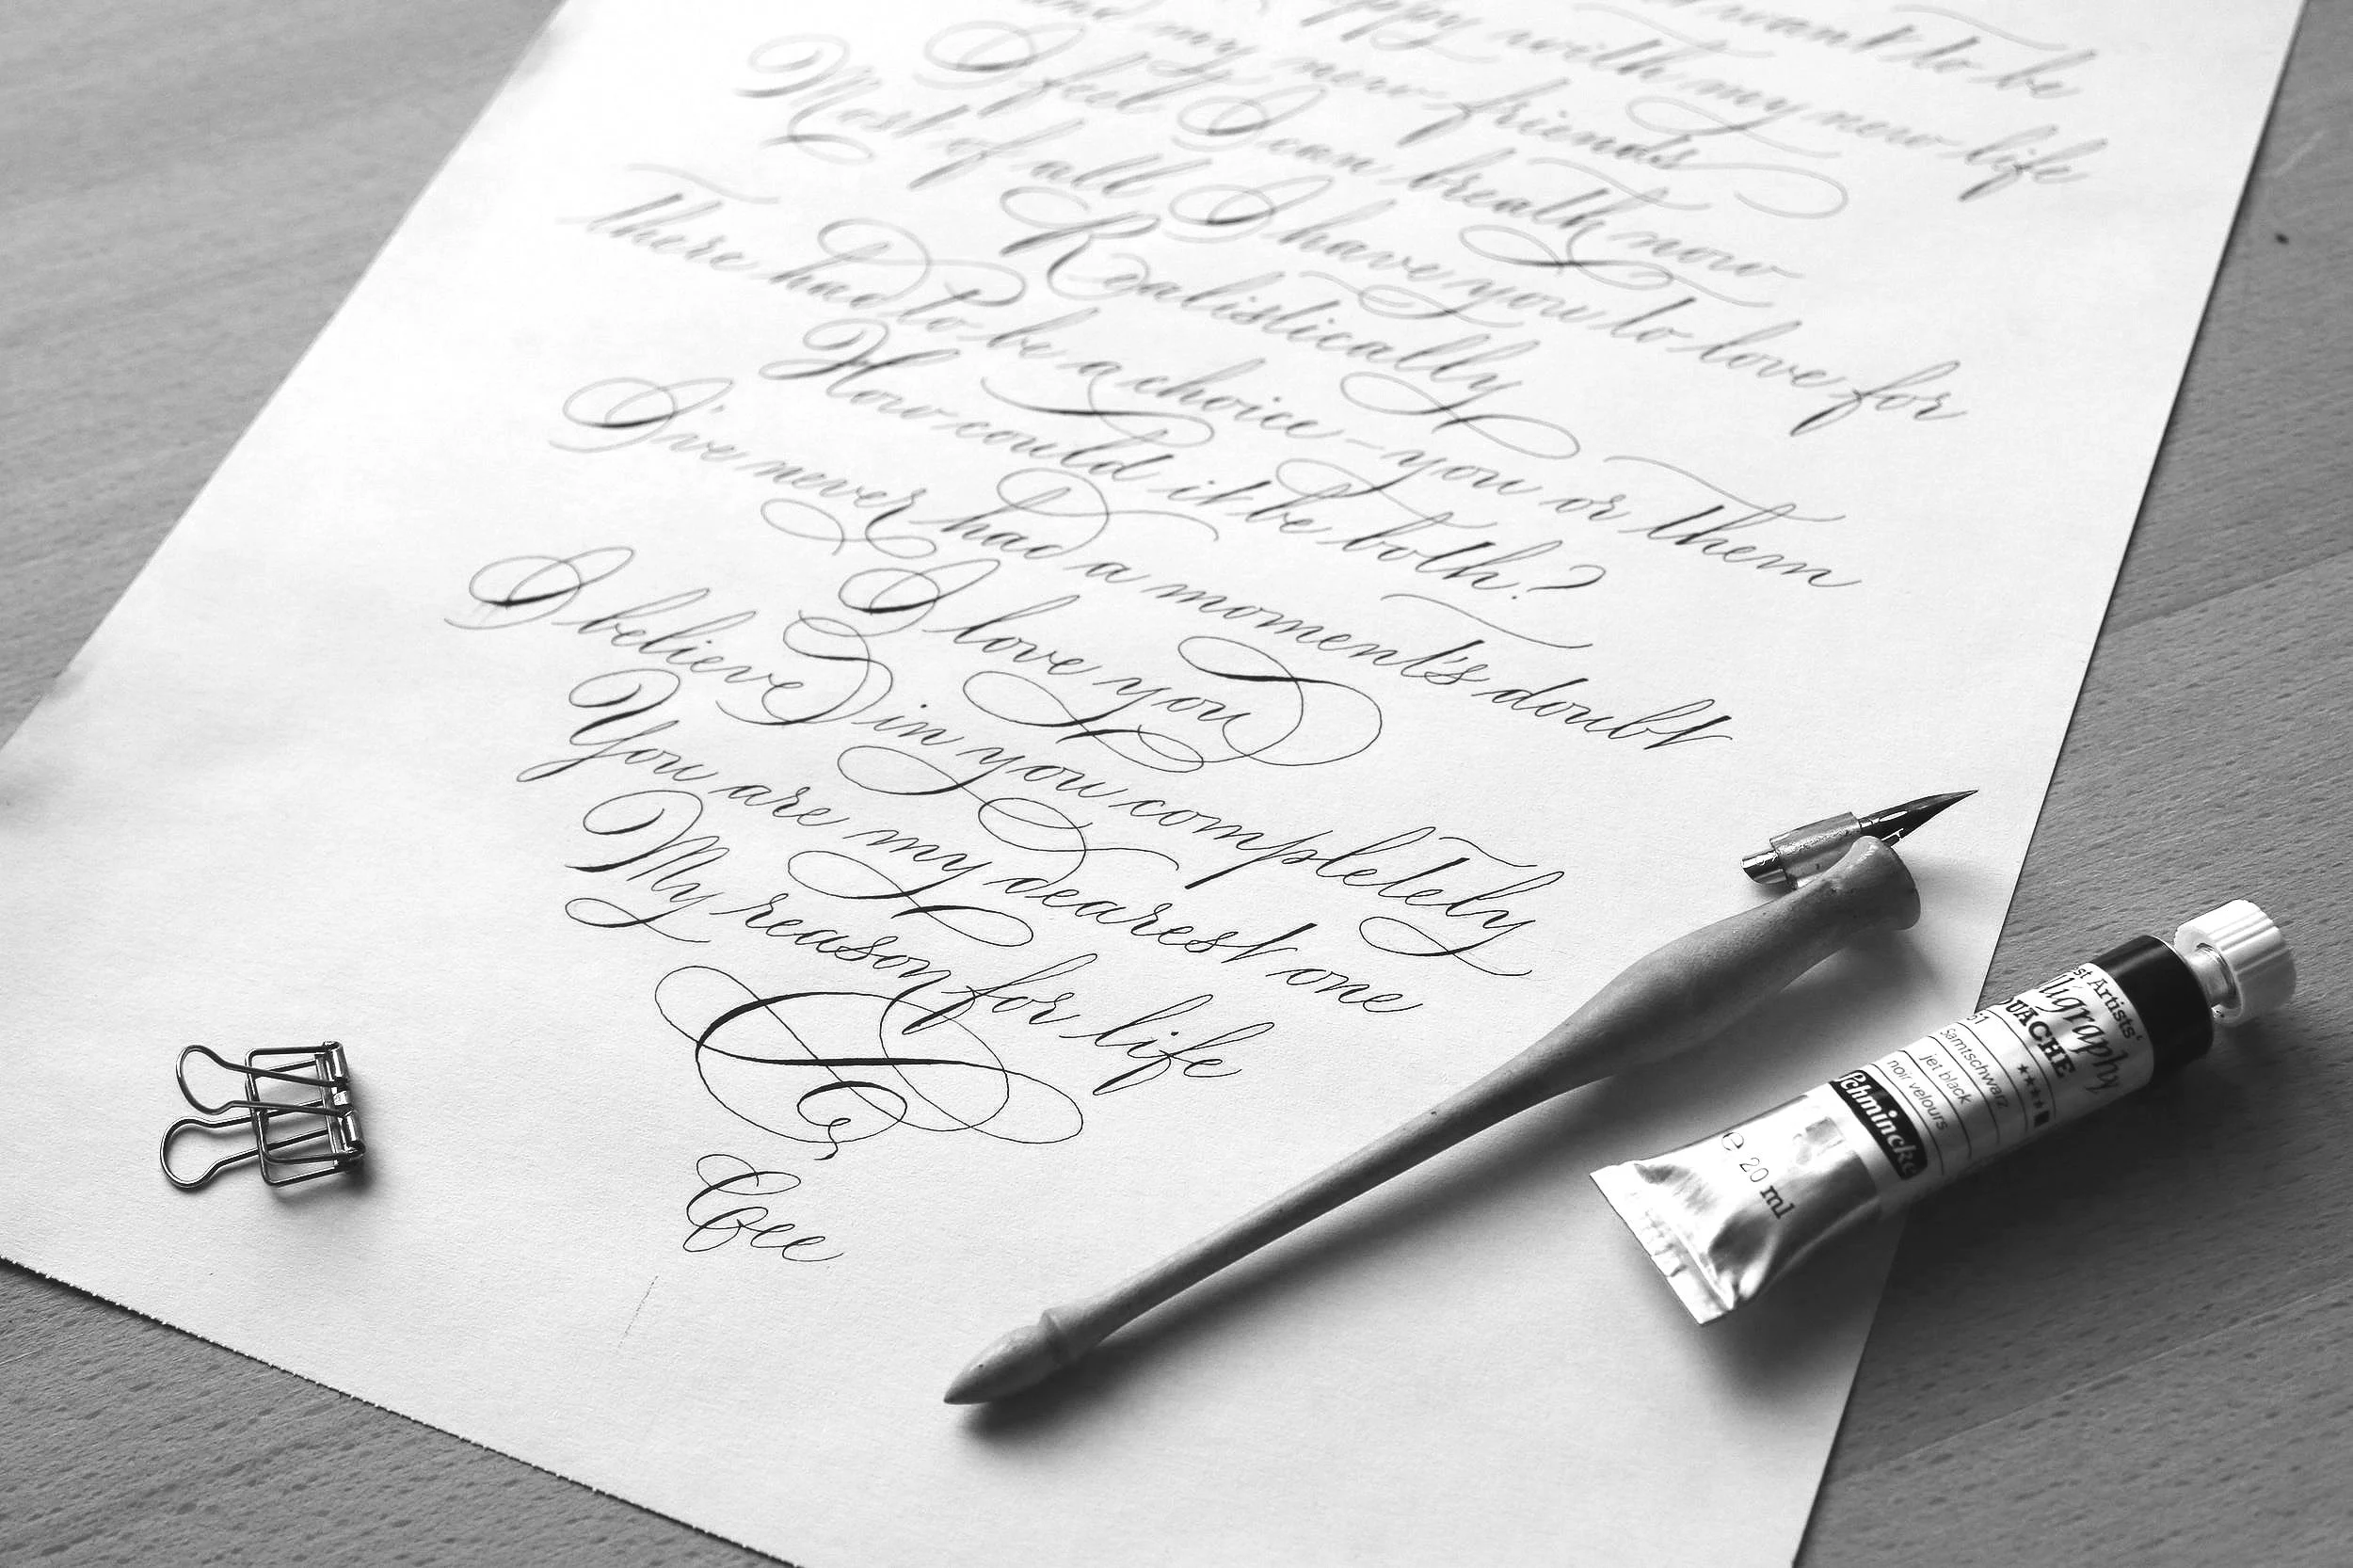 want to be
happy with my new life
and my new friends
I feel I can breath now
Most of all I have you to love for
Realistically
There had to be a choice - you or them
How could it be both?
I've never had a moment's doubt
I love you
I believe in you completely
You are my dearest one
My reason for life
st Artists'
lligraphy
OUACHE
51
Samtschwarz
jet black
noir velours
Schmincke
e 20 ml